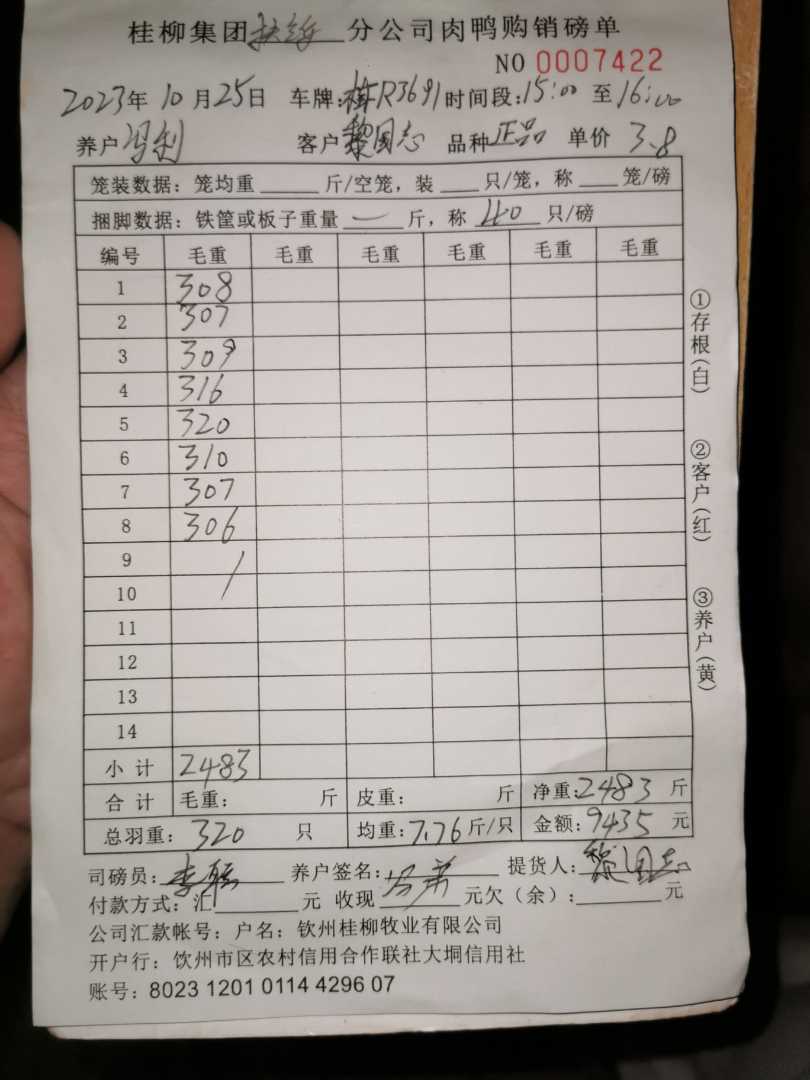 桂柳集团扶绥分公司肉鸭购销磅单
NO 0007422
2023年10月25日 车牌:桂R3691 时间段:15:00 至 16:00
养户 冯利 客户 黎国志 品种 正品 单价 3.8
笼装数据：笼均重 斤/空笼，装 只/笼，称 笼/磅
捆脚数据：铁筐或板子重量 一 斤，称 40 只/磅
编号 毛重 毛重 毛重 毛重 毛重 毛重
1 308
2 307
3 309
4 316
5 320
6 310
7 307
8 306
9
10
11
12
13
14
小计 2483
合计 毛重： 斤 皮重： 斤 净重:2483 斤
总羽重： 320 只 均重:7.76 斤/只 金额:9435 元
司磅员: 养户签名: 提货人: 黎国志
付款方式：汇 元 收现 元欠（余）: 元
公司汇款帐号：户名：钦州桂柳牧业有限公司
开户行：饮州市区农村信用合作联社大垌信用社
账号：8023 1201 0114 4296 07
①存根(白)
②客户(红)
③养户(黄)